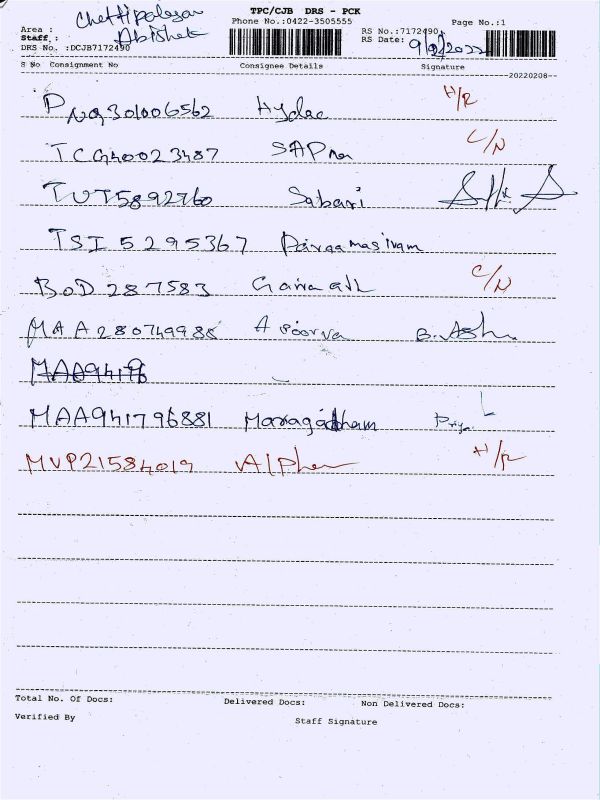 TPC/CJB DRS - PCK
Area : Chettipalayam
Phone No.:0422-3505555
Page No.:1
Staff : Abishek
RS No.:7172490
RS Date: 9/2/2022
DRS No. :DCJB7172490
S No Consignment No Consignee Details Signature
20220208
PNQ301006562 Hydac H/R
TCG40023487 SAPna C/N
TUT5892760 Sabari
TSI 5295367
BOD 287583 C/N
MAA 280749985 Apoorva B. Ash
MAA94179
MAA941796881 Maragadham Priya
MVP21584019 Alpha H/R
Total No. Of Docs: Delivered Docs: Non Delivered Docs:
Verified By Staff Signature